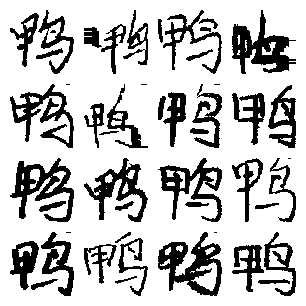 鸭鸭鸭鸭
鸭鸭鸭鸭
鸭鸭鸭鸭
鸭鸭鸭鸭